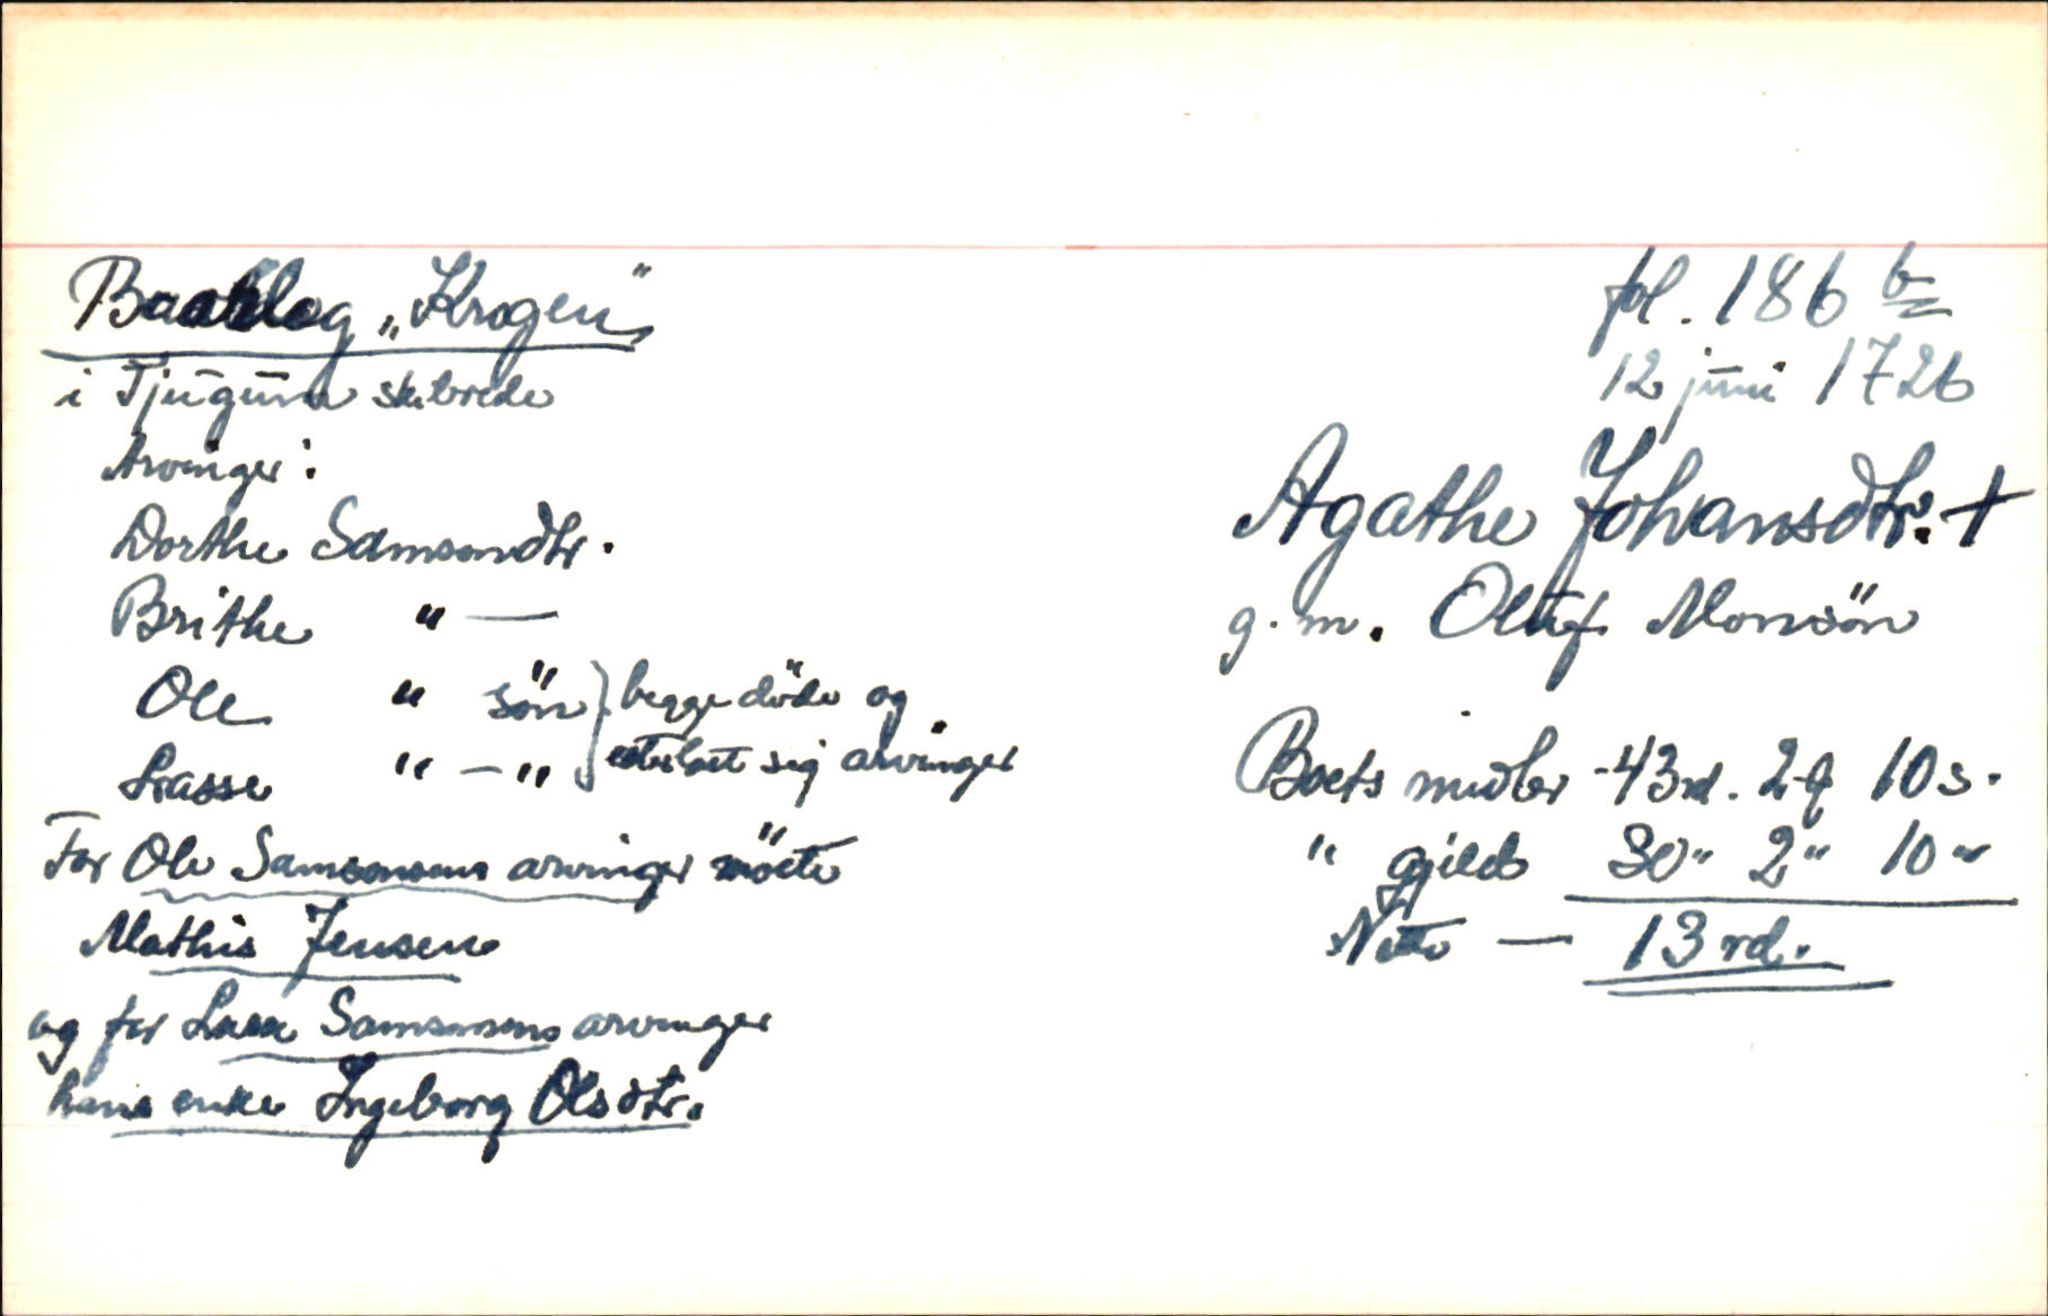 „Krogen“
i Tjugum skibrede
Arvinger:
Dorthe Samsondtr.
Brithe " —
Ole " sön } begge döde og
Lasse " – " } efterlatt sig arvinger
For Ole Samsonsens arvinger mötte
Mathis Jensen
og for Lasse Samsonsens arvinger
hans enke Ingeborg Olsdtr.
fol. 186 b
12 juni 1726
Agathe Johansdtr. +
g. m. Oluf Monsön
Boets midler - 43 rd. 2 q 10 s.
" gjeld 30 " 2 " 10 "
Netto — 13 rd.